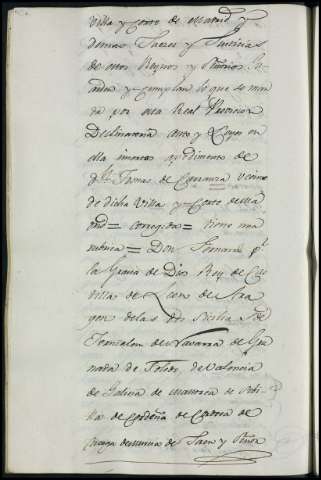 villa y Corte de Madrid y
demas Jueces y Justicias
de estos Reynos y Señorios
y cumplan lo que se man
da por esta Real Provision
Autos y Leyes en
ella insertas a pedimento de
Dn. Tomas de Carranza vecino
de dicha Villa y Corte de Ma
drid = corregida = tiene ma
= Don por
la Gracia de Dios Rey de Cas
tilla de Leon de Ara
gon de las dos Sicilias de
Jerusalen de Navarra de Gra
nada de Toledo de Valencia
de Galicia de Mallorca de Sevi
lla de Cerdeña de Cordova de
de Murcia de Jaen y Señor